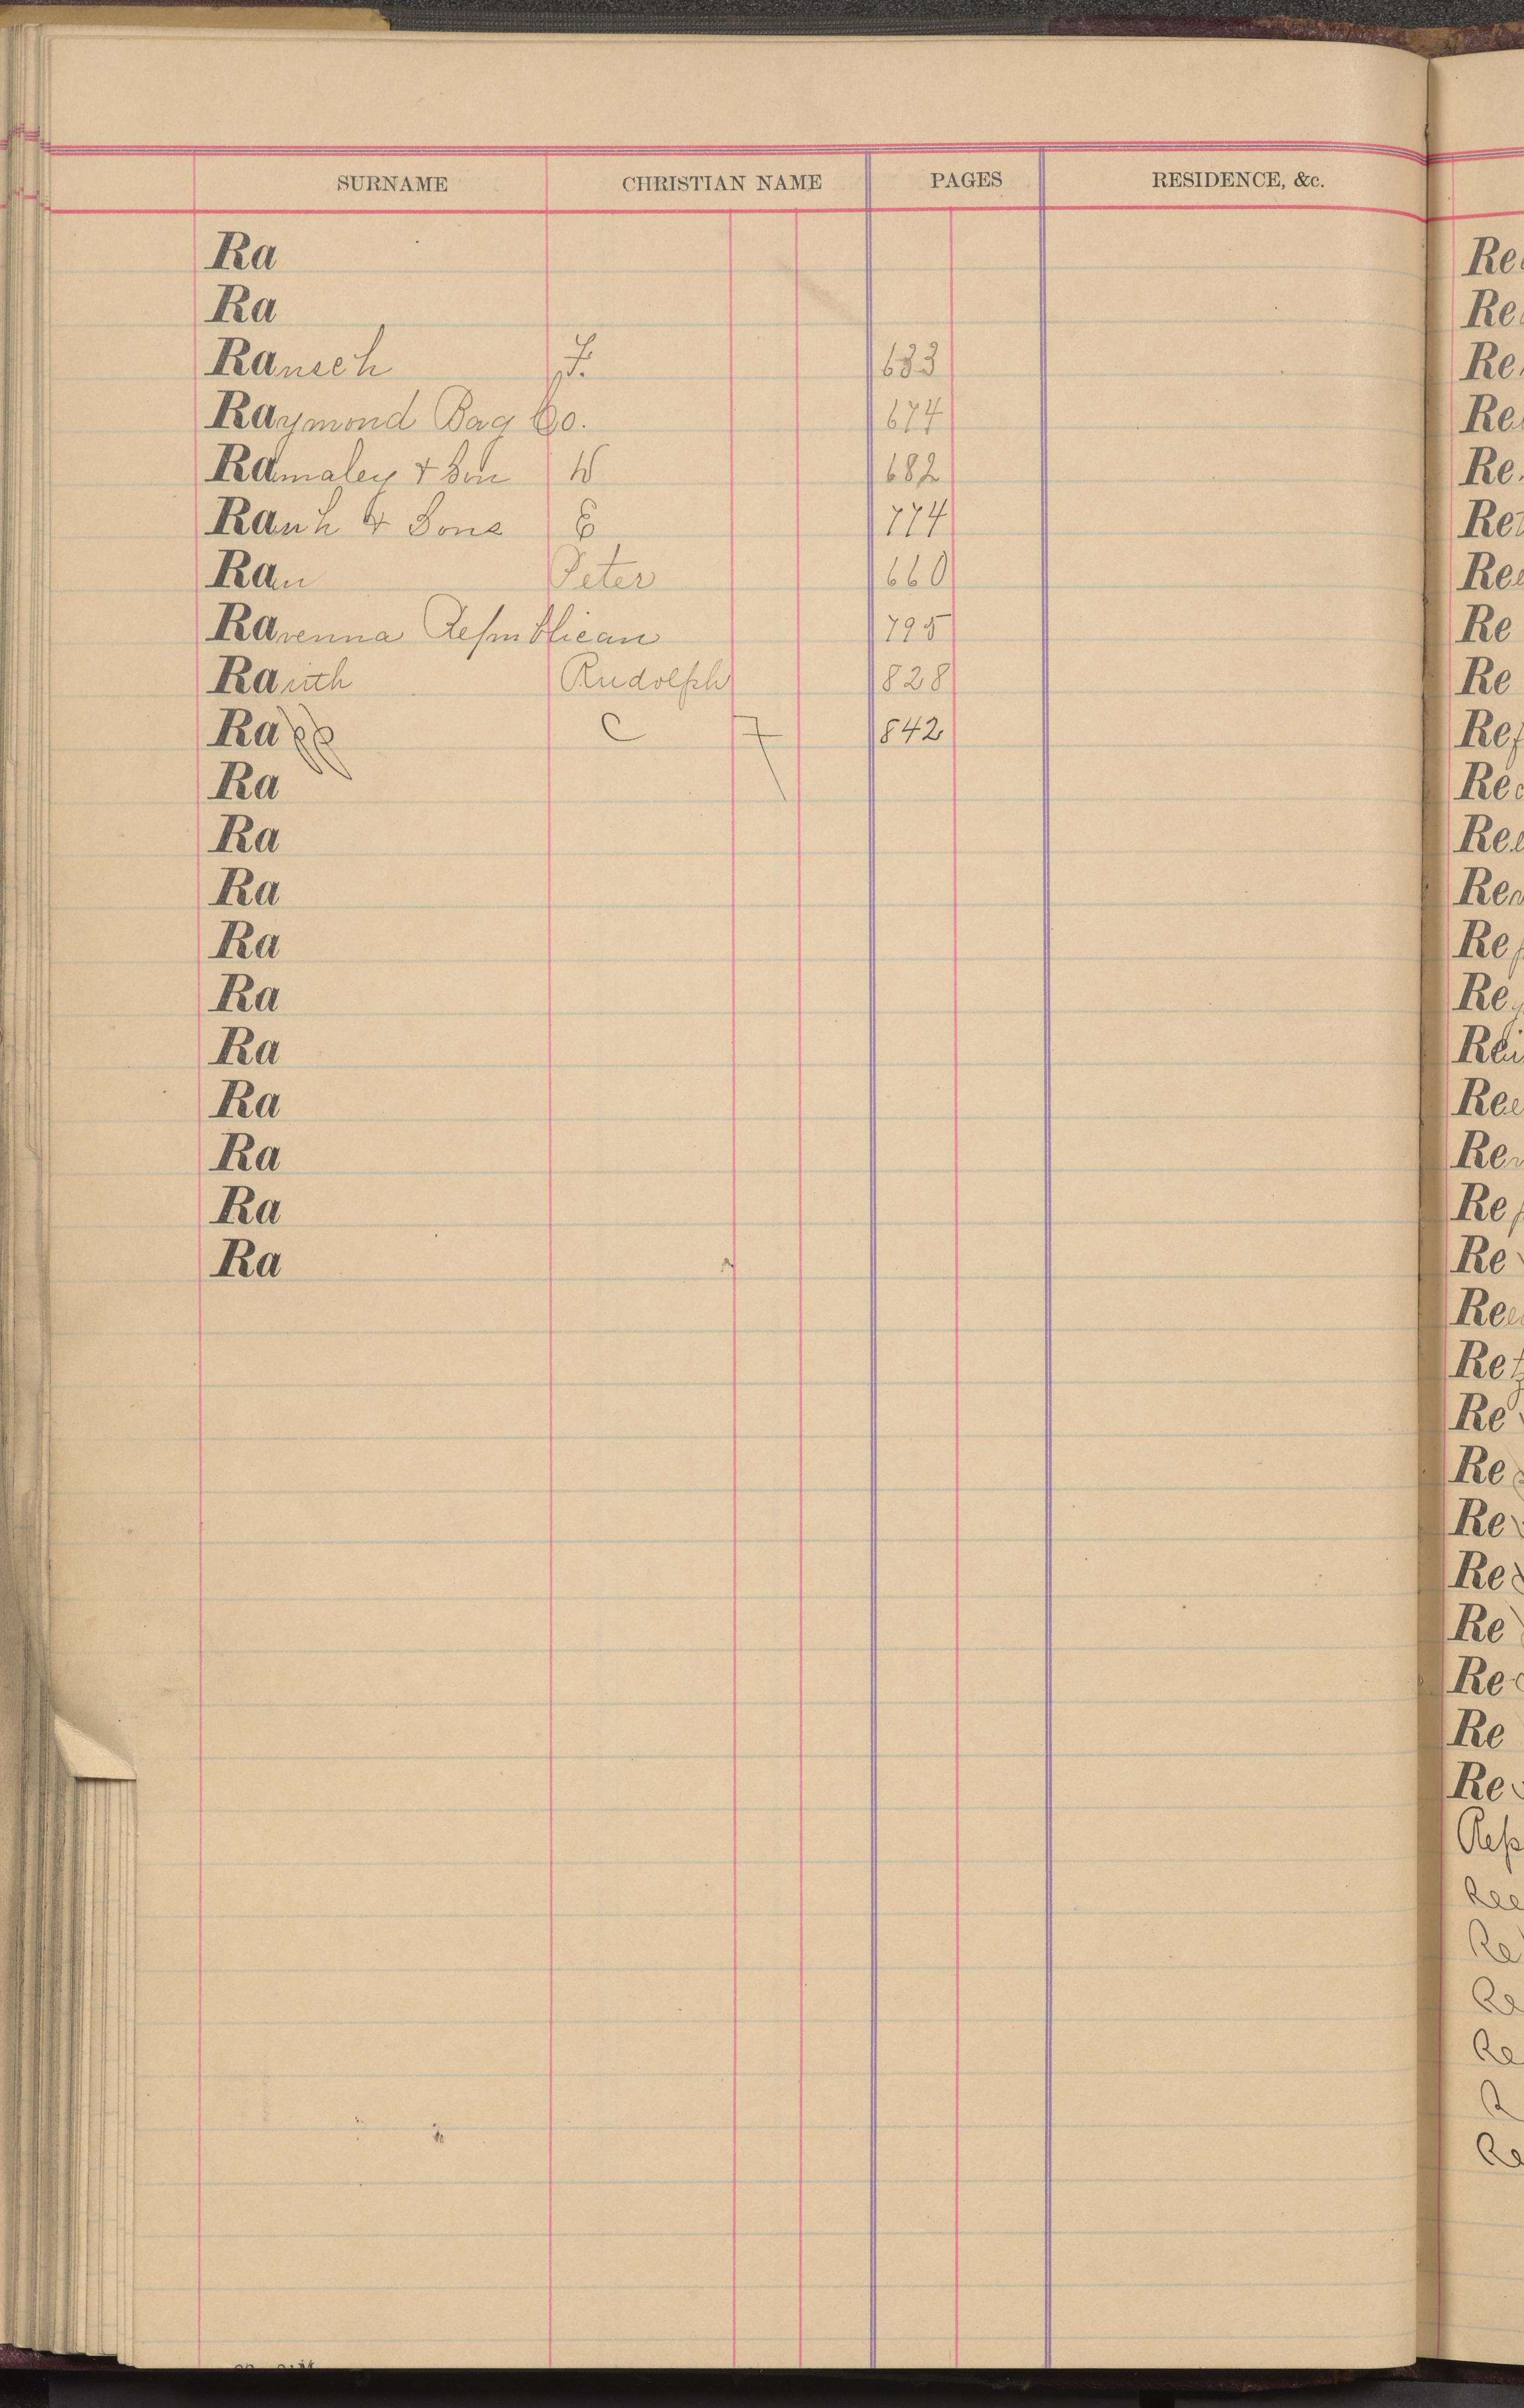 SURNAME CHRISTIAN NAME PAGES RESIDENCE, &c.
Ra
Ra
Rausch F. 633
Raymond Bag Co. 674
Ramaley + Son W 682
Rauh + Sons E 774
Rau Peter 660
Ravenna Republican 795
Rauth Rudolph 828
Rapp C F 842
Ra
Ra
Ra
Ra
Ra
Ra
Ra
Ra
Ra
Ra
Re
Re
Re
Re
Re
Ret
Ree
Re
Re
Rep
Rec
Ree
Ren
Rep
Rey
Rei
Ree
Ren
Rep
Re
Ree
Ret
Re
Re
Re
Re
Re
Re
Re
Re
Rep
Ree
Re
Re
Re
R
Re